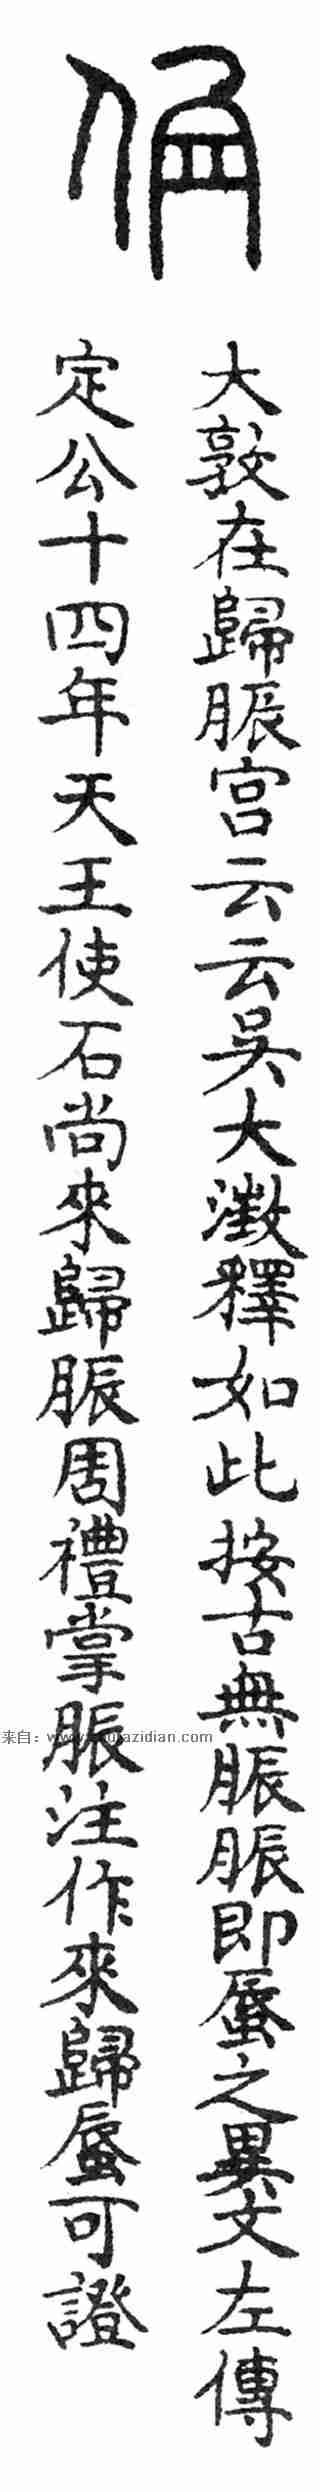 大敦在歸脤宮云云吳大澂釋如此按古無脤脤即蜃之異文左傳
定公十四年天王使石尚來歸脤周禮掌脤注作來歸蜃可證
来自：